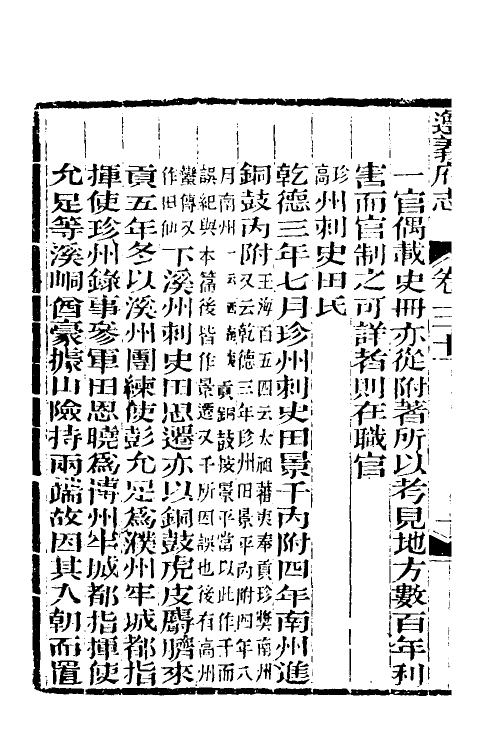 遵義府志
卷三十
一官偶載史冊亦從附著所以考見地方數百年利
害而官制之可詳者則在職官
珍州刺史田氏
高
乾德三年七月珍州刺史田景千內附四年南州進
銅鼓內附
玉海百五四云太祖蕃夷奉貢珍獎南州
又云乾德三年珍州田景平內附四年八
月南州
貢銅鼓按景平當以此作千而
誤紀與本篇後皆作景遷又千所因誤也後有高州
蠻傳又
作田仙
下溪州刺史田思遷亦以銅鼓虎皮麝臍來
貢五年冬以溪州團練使彭允足為濮州牢城都指
揮使珍州錄事參軍田思曉為博州牢城都指揮使
允足等溪峒酋豪據山險持兩端故因其入朝而置